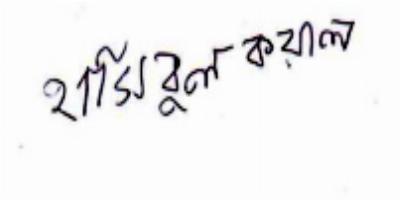 হাসিবুল কয়াল